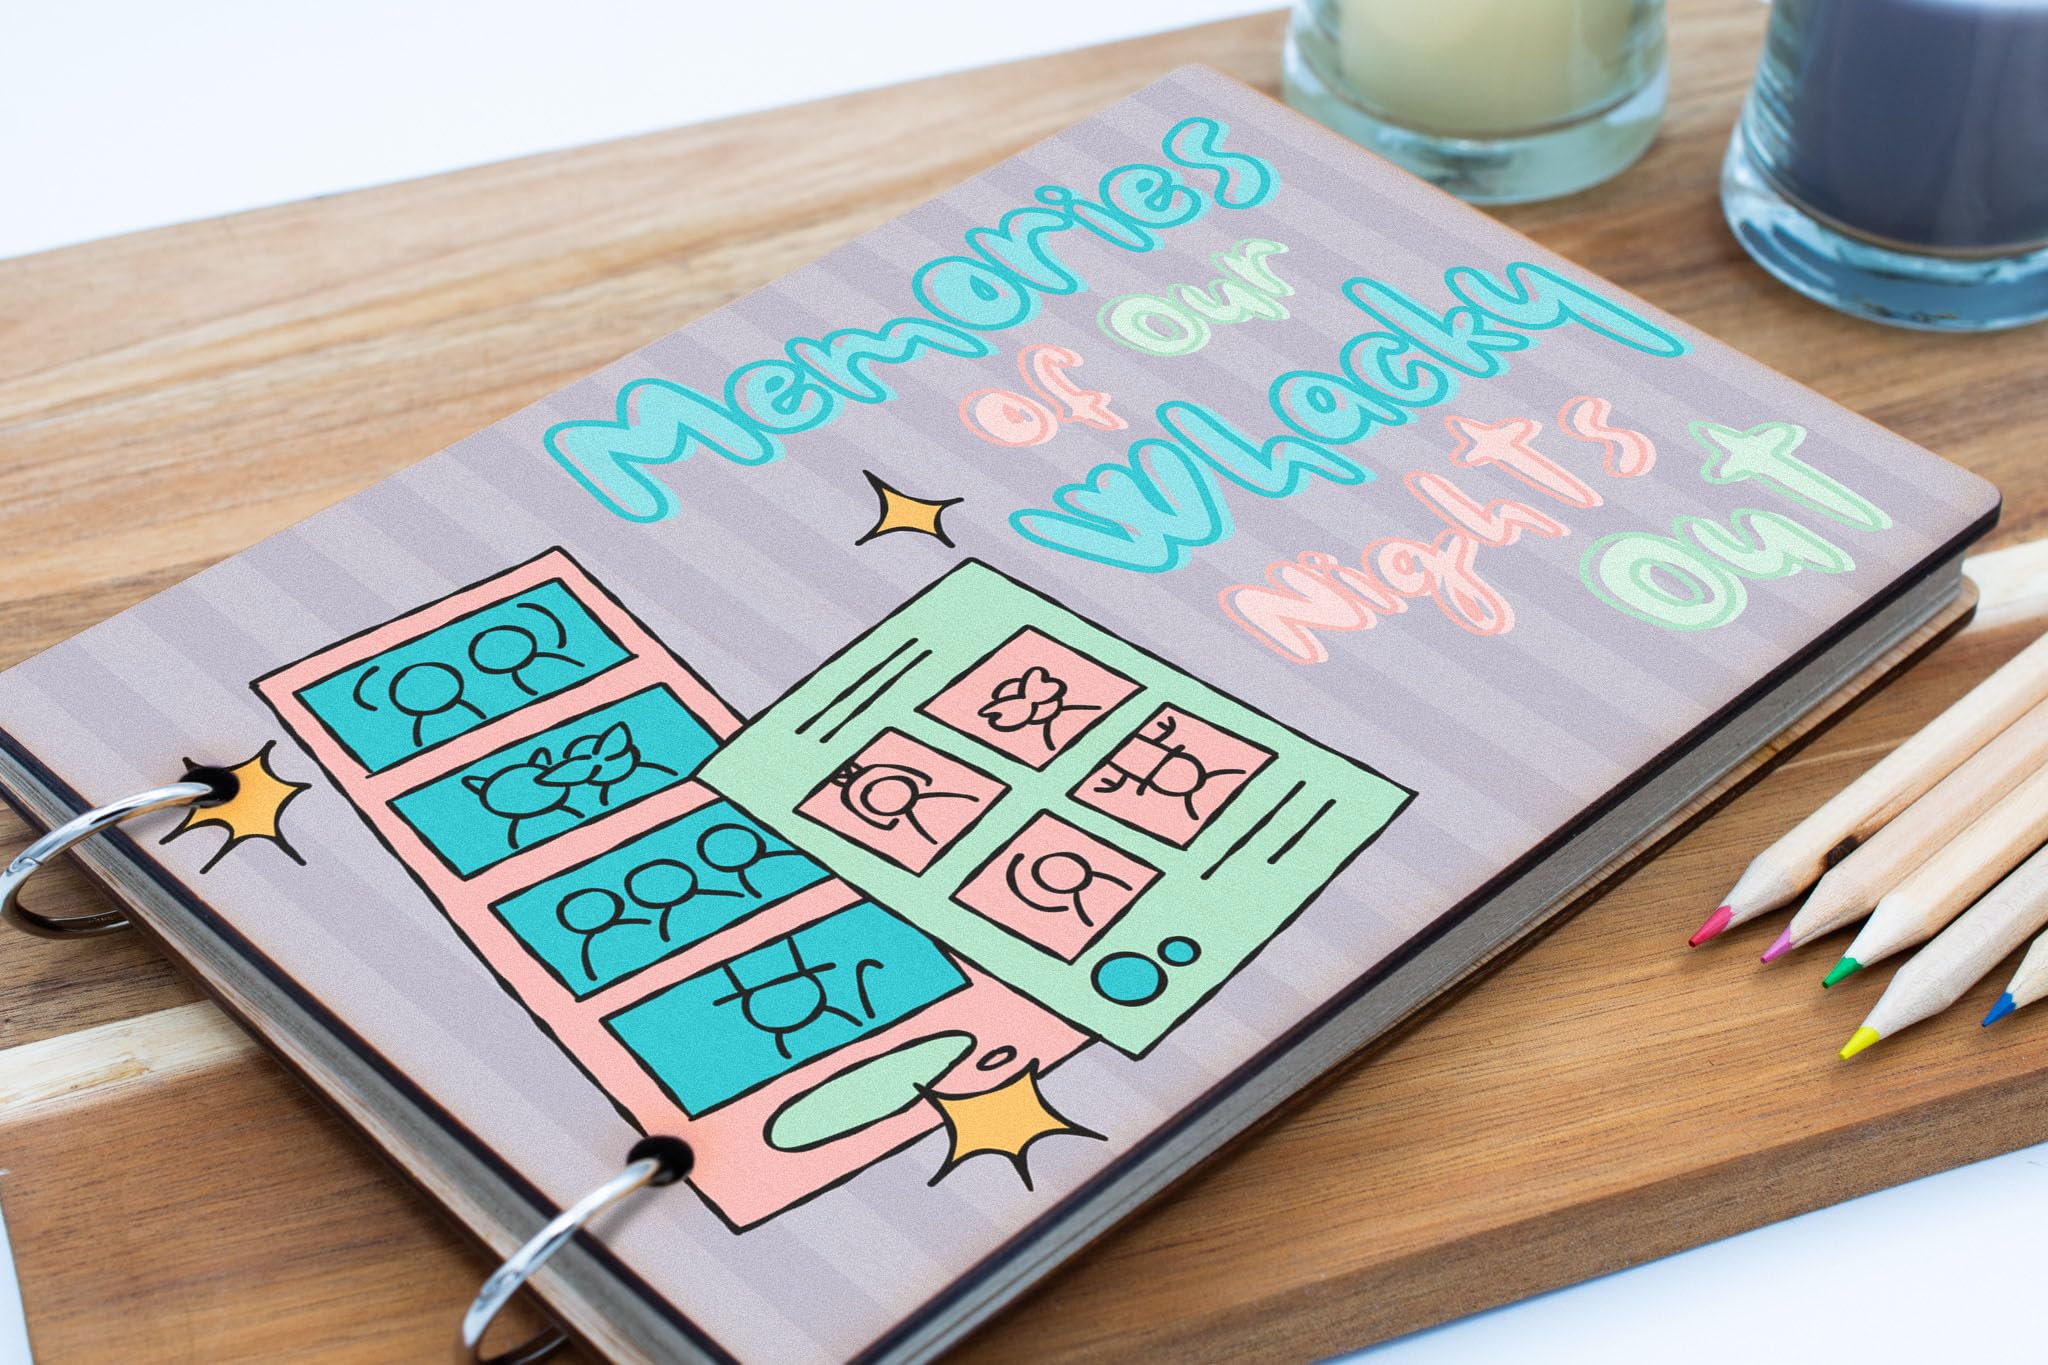 Memories
Of Our
Whacky
Nights
Out